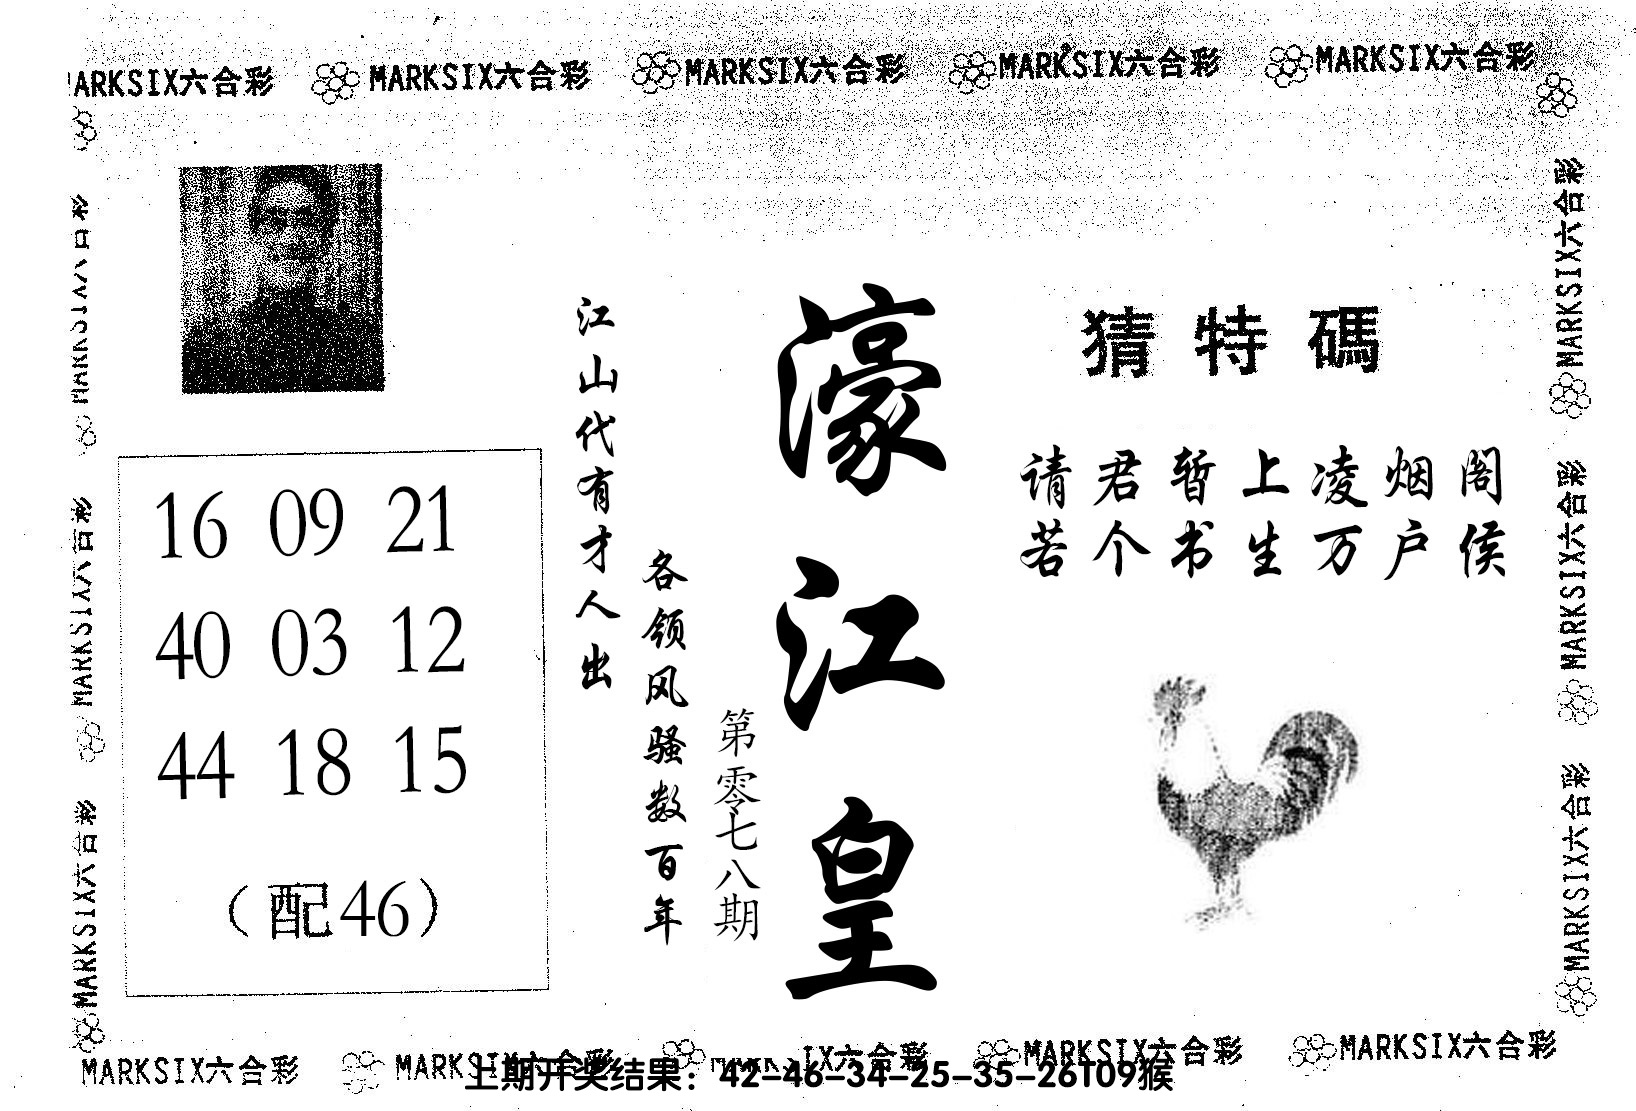 MARKSIX六合彩 MARKSIX六合彩 MARKSIX六合彩 MARKSIX六合彩 MARKSIX六合彩
MARKSIX六合彩
MARKSIX六合彩
MARKSIX六合彩
16 09 21
40 03 12
44 18 15
(配46)
江山代有才人出
各领风骚数百年
第零七八期
濠江皇
猜特碼
请君暂上凌烟阁
若个书生万户侯
MARKSIX六合彩
MARKSIX六合彩
MARKSIX六合彩
MARKSIX六合彩 MARKSIX六合彩 IX六合彩 MARKSIX六合彩 MARKSIX六合彩
上期开奖结果：42-46-34-25-35-26T09猴